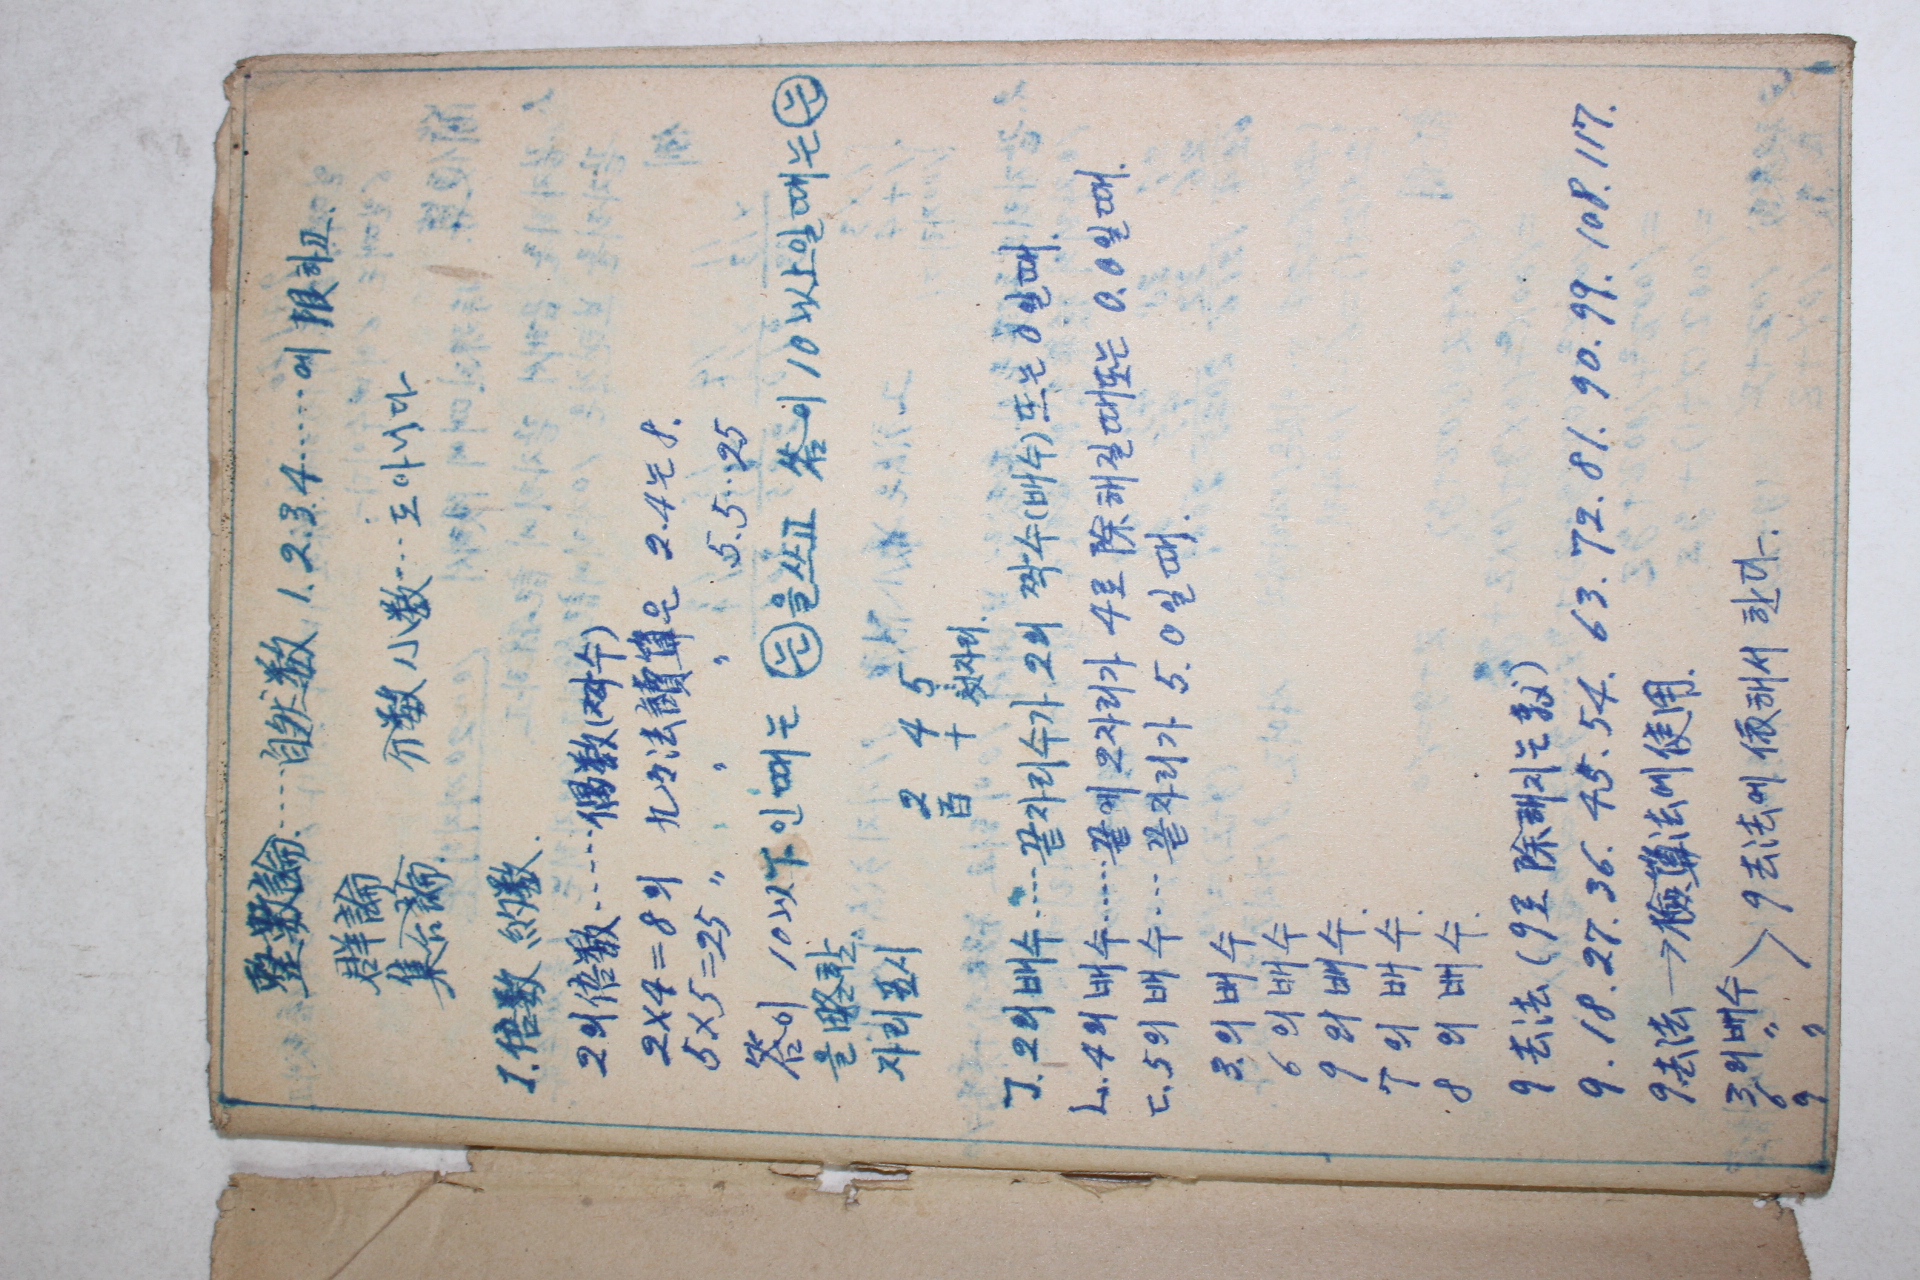 整數論.····自然数 1.2.3.4·····에 限하고.
群論
集合論.　分数 小数···· 도 아니다
I. 倍數 約数.
2의 倍数······偶数(짝수)
2×4=8의 九々法讀算은 2.4는 8.
5×5=25 〃 〃 〃 5.5···25
答이 10以下인 때는 ㊀는을쓰고 答이 10以上일 때는 는
을 略함.
자리표시
2 4 5
百 十 첫자리.
ㄱ. 2의 배수····끝자리수가 2의 짝수(배수) 또는 0일 때.
ㄴ. 4의 배수·····끝에 2자리가 4로 除해질때또는 0.0일 때.
ㄷ. 5의 배수···끝자리가 5.0일 때.
3.의 배수
6의 배수
9의 배수.
7의 배수.
8의 배수.
9去法 (9로 除해지는 数)
9.18.27.36.45.54. 63.72.81.90.99.108.117.
9去法 → 檢算法에 使用.
3의 배수
6 〃
9 〃
9去法에 依해서 한다.